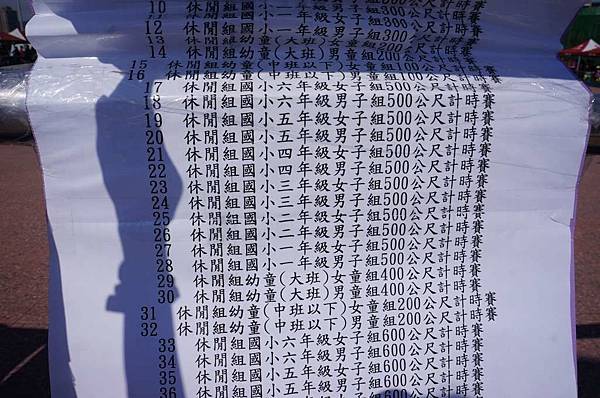 10 休閒組國小二年級男子組300公尺計時賽
11 休閒組國小一年級女子組300公尺計時賽
12 休閒組國小一年級男子組300公尺計時賽
13 休閒組幼童(大班)女童組200公尺計時賽
14 休閒組幼童(大班)男童組200公尺計時賽
15 休閒組幼童(中班以下)女童組100公尺計時賽
16 休閒組幼童(中班以下)男童組100公尺計時賽
17 休閒組國小六年級女子組500公尺計時賽
18 休閒組國小六年級男子組500公尺計時賽
19 休閒組國小五年級女子組500公尺計時賽
20 休閒組國小五年級男子組500公尺計時賽
21 休閒組國小四年級女子組500公尺計時賽
22 休閒組國小四年級男子組500公尺計時賽
23 休閒組國小三年級女子組500公尺計時賽
24 休閒組國小三年級男子組500公尺計時賽
25 休閒組國小二年級女子組500公尺計時賽
26 休閒組國小二年級男子組500公尺計時賽
27 休閒組國小一年級女子組500公尺計時賽
28 休閒組國小一年級男子組500公尺計時賽
29 休閒組幼童(大班)女童組400公尺計時賽
30 休閒組幼童(大班)男童組400公尺計時賽
31 休閒組幼童(中班以下)女童組200公尺計時賽
32 休閒組幼童(中班以下)男童組200公尺計時賽
33 休閒組國小六年級女子組600公尺計時賽
34 休閒組國小六年級男子組600公尺計時賽
35 休閒組國小五年級女子組600公尺計時賽
36 休閒組國小五年級男子組600公尺計時賽